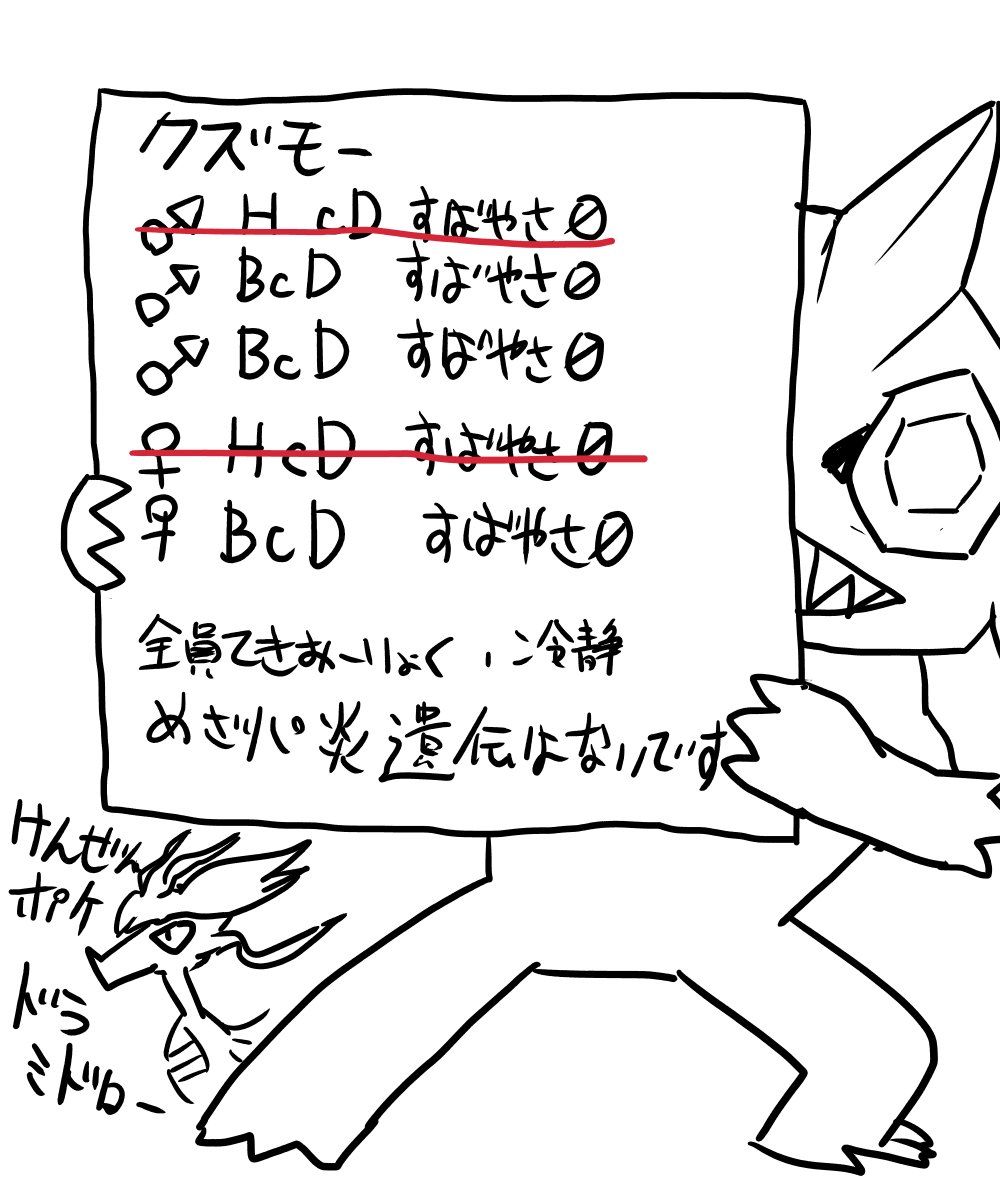 クズモー
♂ H cD すばやさ0
♂ BcD すばやさ0
♂ BcD すばやさ0
♀ HcD すばやさ0
♀ BcD すばやさ0
全員てきおーりょく、冷静
めざパ炎遺伝はないです
けんぜん
ポケ
ドラ
ミドロー